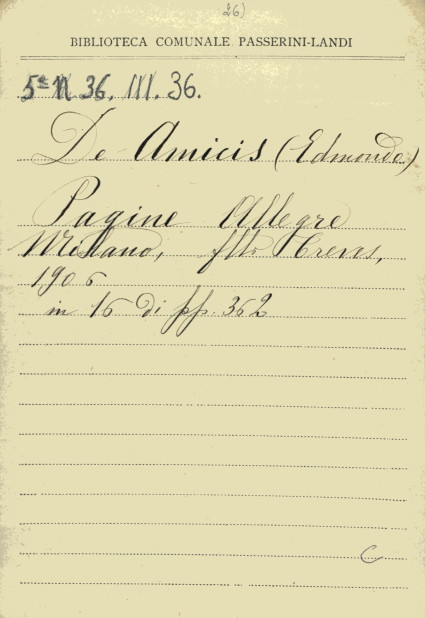 26)
BIBLIOTECA COMUNALE PASSERINI-LANDI
5ª N 36. III. 36.
De Amicis (Edmondo)
Pagine Allegre
Milano, flli Treves,
1906
in 16 di pp. 362
C